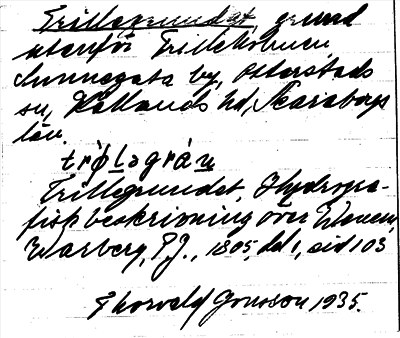 Trillegrundet, grund
utanför Trilleholmen,
Sunnegata by, Otterstads
sn, Kållands hd, Skaraborgs
län.
Trillegrundet, Hydrogra-
fisk beskrivning över Wänern,
Warberg, P.J., 1805, del 1, sid 103
Thorvald Jonsson 1935.